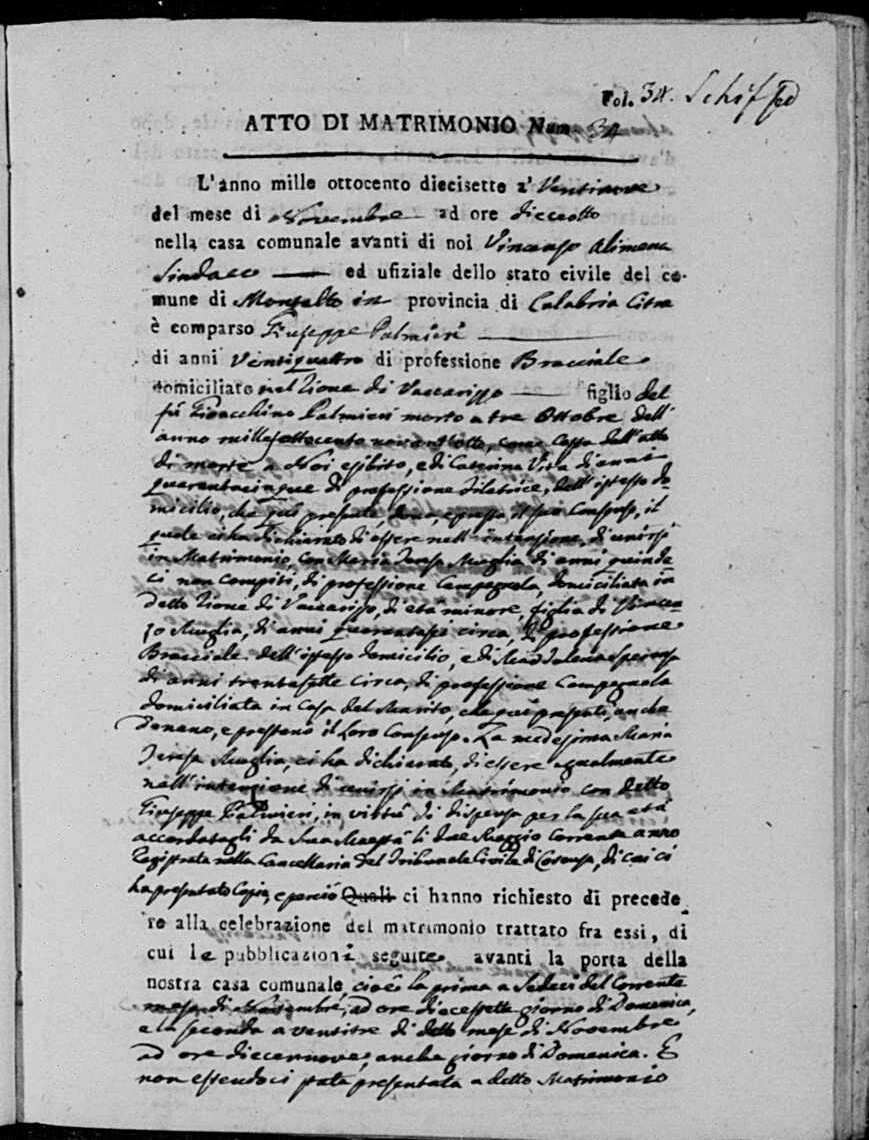 Fol. 34.
ATTO DI MATRIMONIO Num. 34
L'anno mille ottocento diecisette a' Ventinove
del mese di Novembre ad ore dieciotto
nella casa comunale avanti di noi Vincenzo Alimena
Sindaco ed ufiziale dello stato civile del co-
mune di Montalto in provincia di Calabria Citra
è comparso Giuseppe Palmieri
di anni ventiquattro di professione Bracciale
domiciliato nel Rione di Vaccarizzo figlio del
fù Gioacchino Palmieri morto a tre Ottobre dell'
anno millesettecento novantotto, come costa dall'atto
di morte a Noi esibito, e di Caterina Vita di anni
quarantacinque di professione filatrice, dell'istesso do-
micilio, che quì presente, dona, e presta il suo Consenso, il
quale ci ha dichiarato di essere nell'intenzione, di unirsi
in Matrimonio con Maria Teresa Muglia di anni quinde
ci non compiti, di professione Campagnola, domiciliata in
detto Rione di Vaccarizzo, di età minore, figlia di Vincen
zo Muglia, di anni quarantasei circa, di professione
Bracciale dell'istesso domicilio, e di Maddalena
di anni trentasette circa, di professione Campagnola
domiciliata in Casa del Marito, che quì presenti, anche
donano, e prestano il loro Consenso. La medesima Maria
Teresa Muglia, ci ha dichiarato, di essere egualmente
nell'intenzione di unirsi in Matrimonio con detto
Giuseppe Palmieri, in virtù di dispensa per la sua età
accordatagli da Sua Maestà li due Maggio Corrente anno
registrata nella Cancellaria del Tribunale Civile di Cosenza, di cui ci
ha presentato Copia, e perciò Quali ci hanno richiesto di precede
re alla celebrazione del matrimonio trattato fra essi, di
cui le pubblicazioni seguite avanti la porta della
nostra casa comunale cioè la prima a Sedeci del Corrente
mese di Novembre, ad ore diecessette giorno di Domenica,
e la seconda a ventitre di detto mese di Novembre
ad ore diecennove, anche giorno di Domenica. E
non essendoci stata presentata a detto Matrimonio